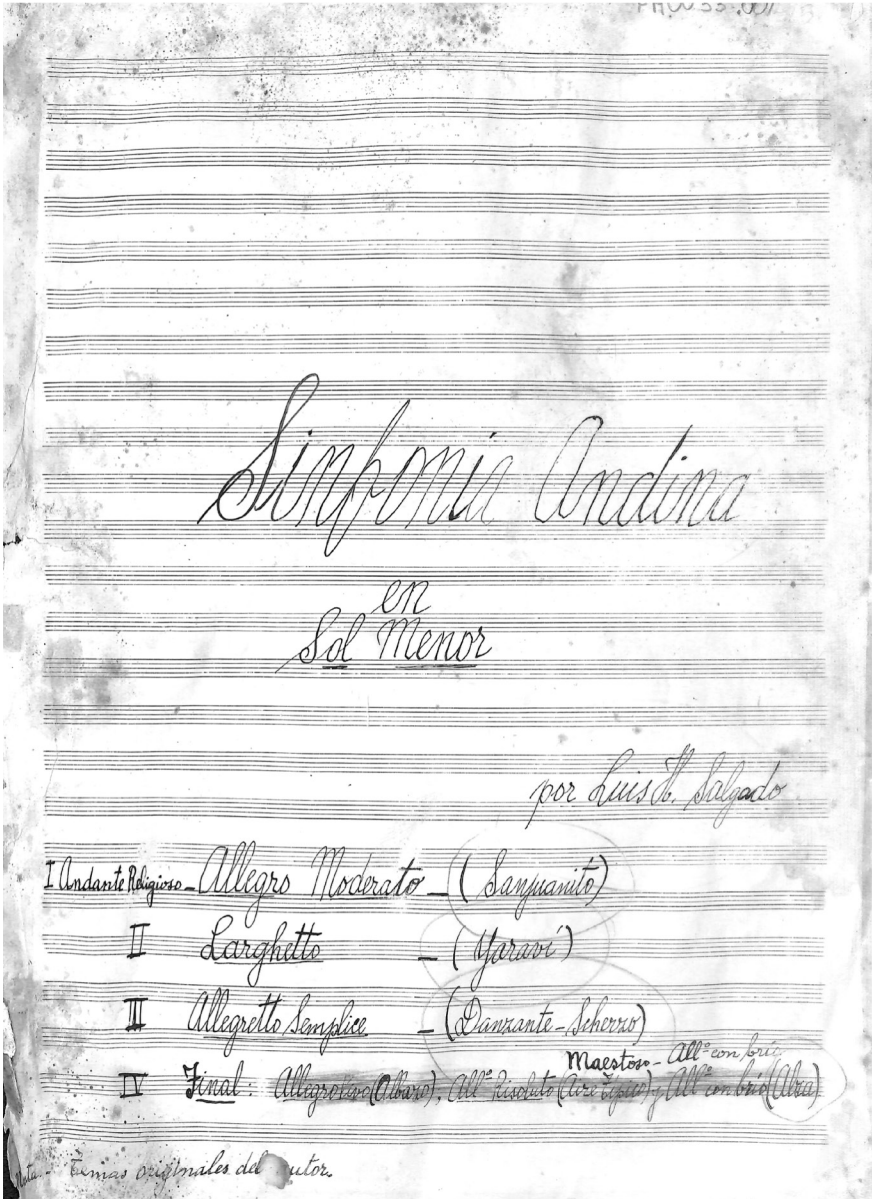 PH0033.001
Sinfonia Andina
en
Sol Menor
por Luis H. Salgado
I Andante Religioso - Allegro Moderato - (Sanjuanito)
II Larghetto - (Yaraví)
III Allegretto Semplice - (Danzante - Scherzo)
Maestoso - All° con brio
IV Final: Allegro vivo (Albazo), All° Risoluto (Aire Típico) y All° con brio (Alza)
Nota - Temas originales del autor